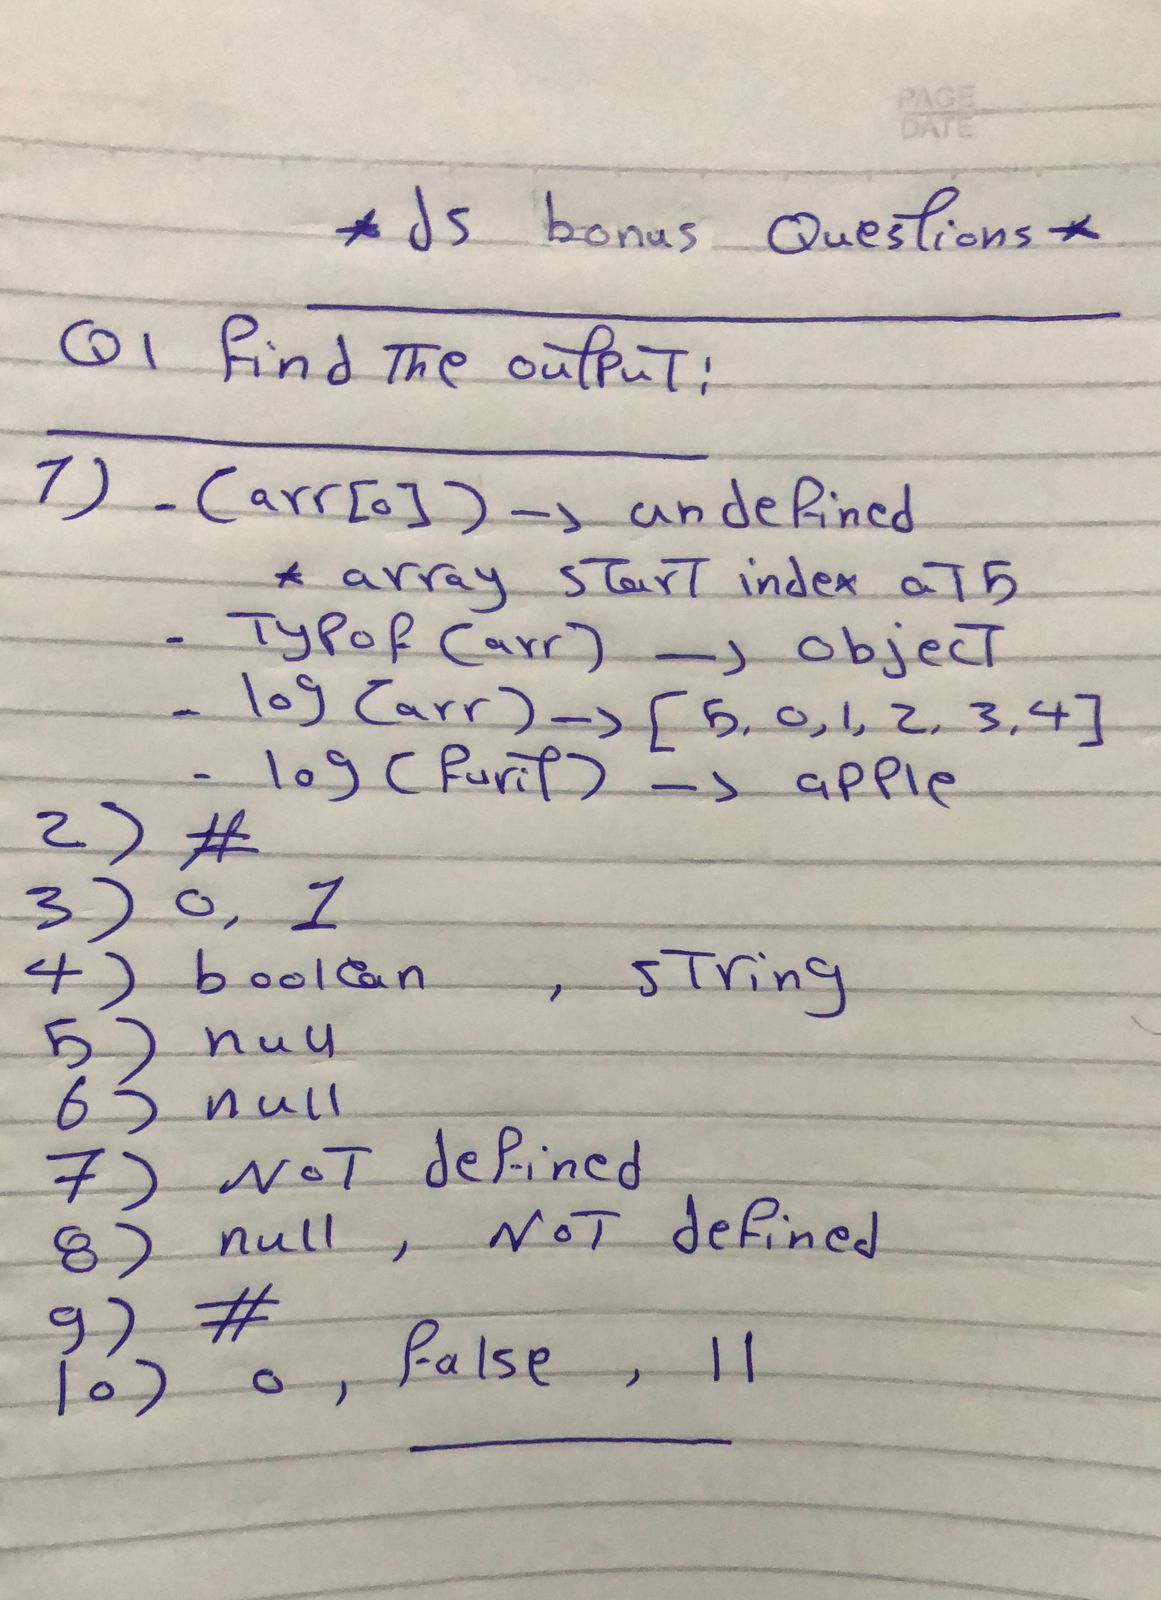 PAGE
DATE
* JS bonus Questions *
Q1 find The output:
1) - (arr[0]) -> undefined
* array start index at 5
- Typof (arr) -> object
- log (arr) -> [5, 0, 1, 2, 3, 4]
- log (furit) -> apple
2) #
3) 0, 1
4) boolean , string
5) null
6) null
7) NOT defined
8) null , NOT defined
9) #
10) 0 , false , 11